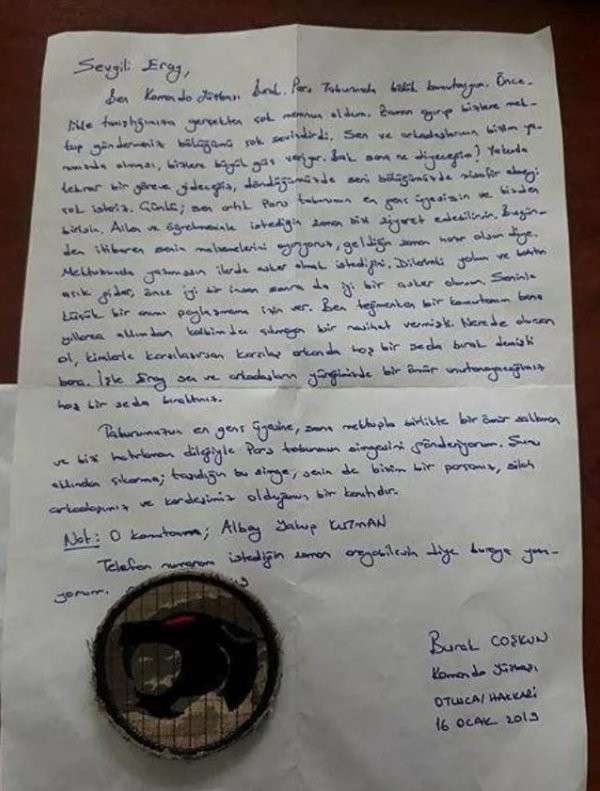 Sevgili Eray,
Ben Komando Yüzbaşı Burak. Pars Taburunda bölük komutanıyım. Önce-
likle tanıştığımıza gerçekten çok memnun oldum. Zaman ayırıp bizlere mek-
tup göndermeniz bölüğümü çok sevindirdi. Sen ve arkadaşlarının bizim ya-
nımızda olması, bizlere büyük güç veriyor. Bak sana ne diyeceğim? Yakında
tekrar bir göreve gideceğiz, döndüğümüzde seni bölüğümüzde misafir etmeyi
çok isteriz. Çünkü; sen artık Pars taburunun en genç üyesisin ve bizden
birisin. Ailen ve öğretmeninle istediğin zaman bizi ziyaret edebilirsin. Bugün-
den itibaren senin malzemelerini ayırıyoruz, geldiğin zaman hazır olsun diye.
Mektubunda yazmışsın ilerde asker olmak istediğini. Dilerim ki yolun ve bahtın
açık gider, önce iyi bir insan sonra da iyi bir asker olursun. Seninle
küçük bir anımı paylaşmama izin ver. Ben teğmenken bir komutanım bana
yıllarca aklımdan kalbimden çıkmayan bir nasihat vermişti. Nerede olursan
ol, kimlerle karşılaşırsan karşılaş arkanda hoş bir seda bırak demişti
bana. İşte Eray sen ve arkadaşların yüreğimizde bir ömür unutamayacağımız
hoş bir seda bıraktınız.
Taburumuzun en genç üyesine, sana mektupla birlikte bir ömür saklaman
ve bizi hatırlaman dileğiyle Pars taburunun simgesini gönderiyorum. Şunu
aklından çıkarma; taşıdığın bu simge, senin de bizim bir parçamız, silah
arkadaşımız ve kardeşimiz olduğunun bir kanıtıdır.
Not: O komutanım; Albay Yakup KUTMAN
Telefon numaramı istediğin zaman arayabilesin diye buraya yazı-
yorum.
Burak COŞKUN
Komando Yüzbaşı
OTLUCA/HAKKARİ
16 OCAK 2019